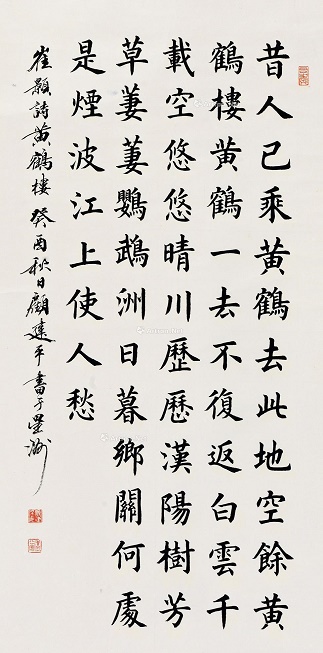 昔人已乘黃鶴去此地空餘黃
鶴樓黃鶴一去不復返白雲千
載空悠悠晴川歷歷漢陽樹芳
草萋萋鸚鵡洲日暮鄉關何處
是煙波江上使人愁
崔顥詩黃鶴樓 癸酉秋日顧建平書于星洲